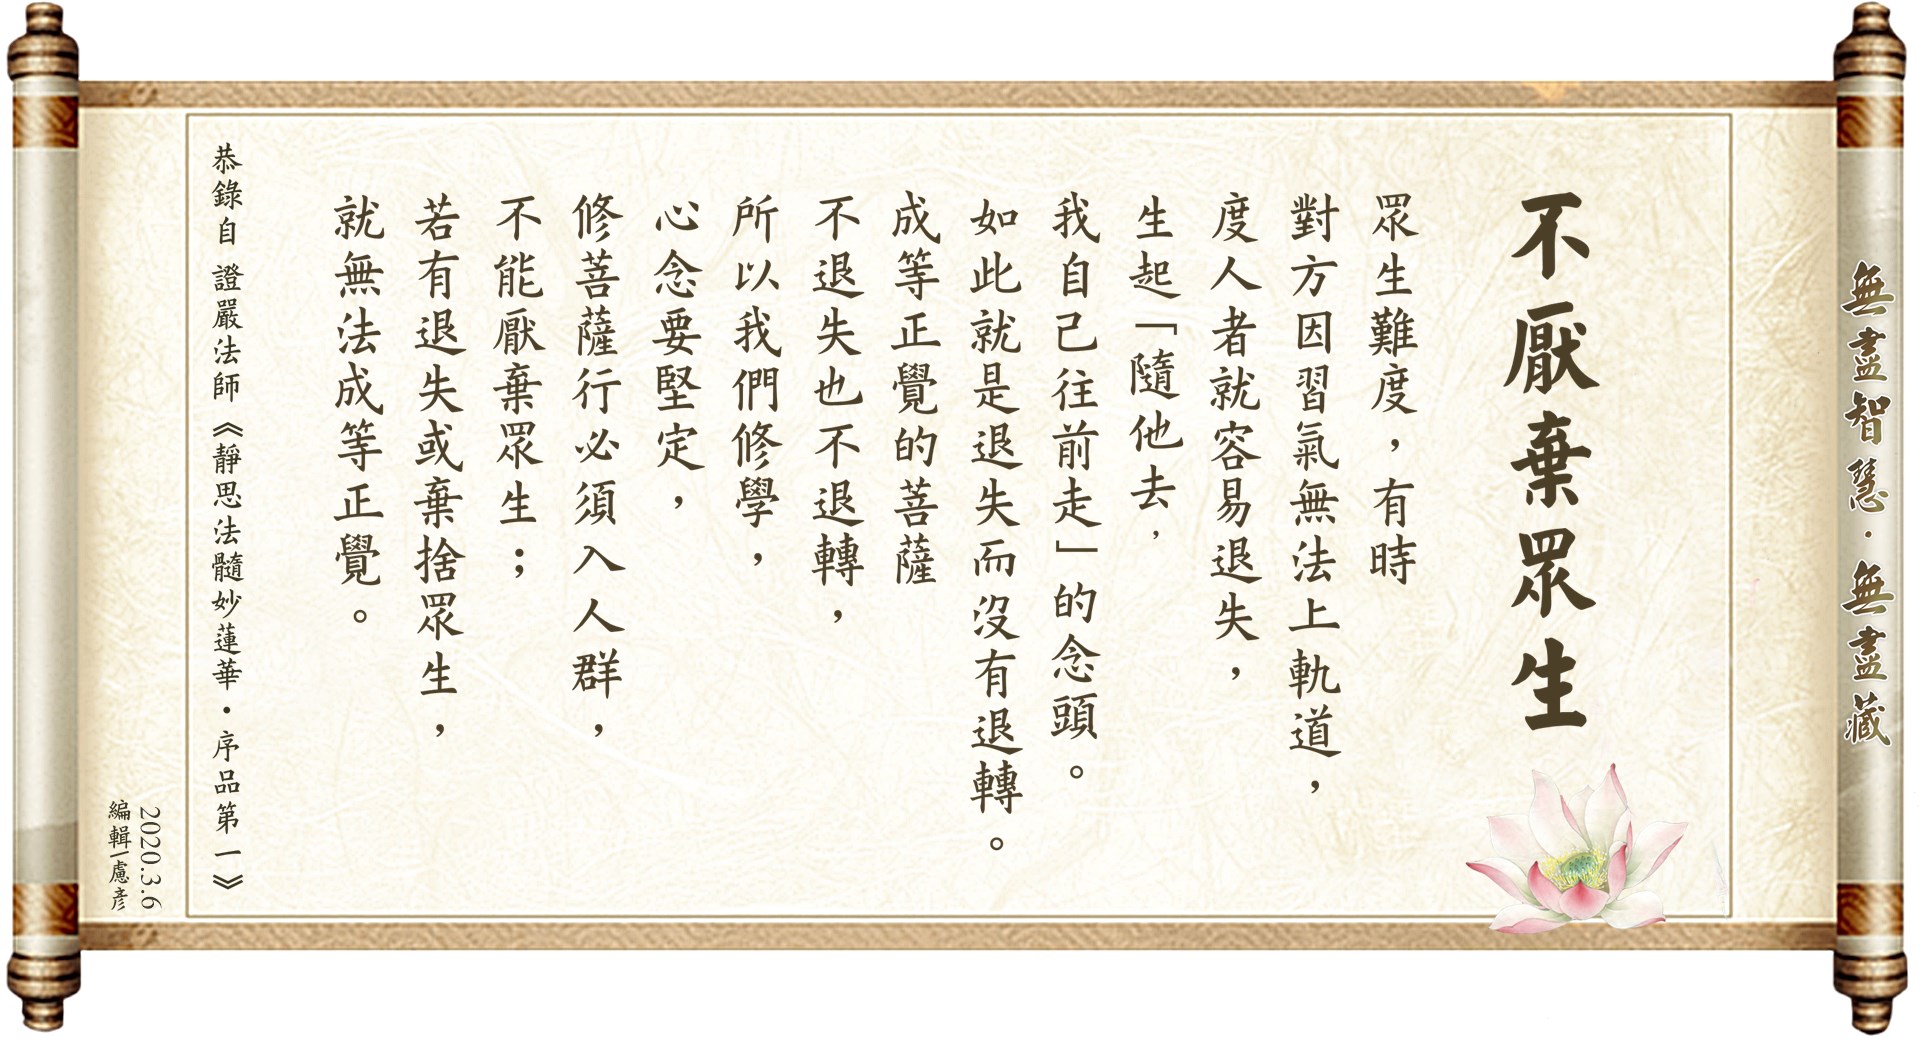 無盡智慧·無盡藏
不厭棄眾生
眾生難度，有時
對方因習氣無法上軌道，
度人者就容易退失，
生起「隨他去，
我自己往前走」的念頭。
如此就是退失而沒有退轉。
成等正覺的菩薩
不退失也不退轉，
所以我們修學，
心念要堅定，
修菩薩行必須入人群，
不能厭棄眾生；
若有退失或棄捨眾生，
就無法成等正覺。
恭錄自 證嚴法師《靜思法髓妙蓮華·序品第一》
2020.3.6
編輯|慮彥